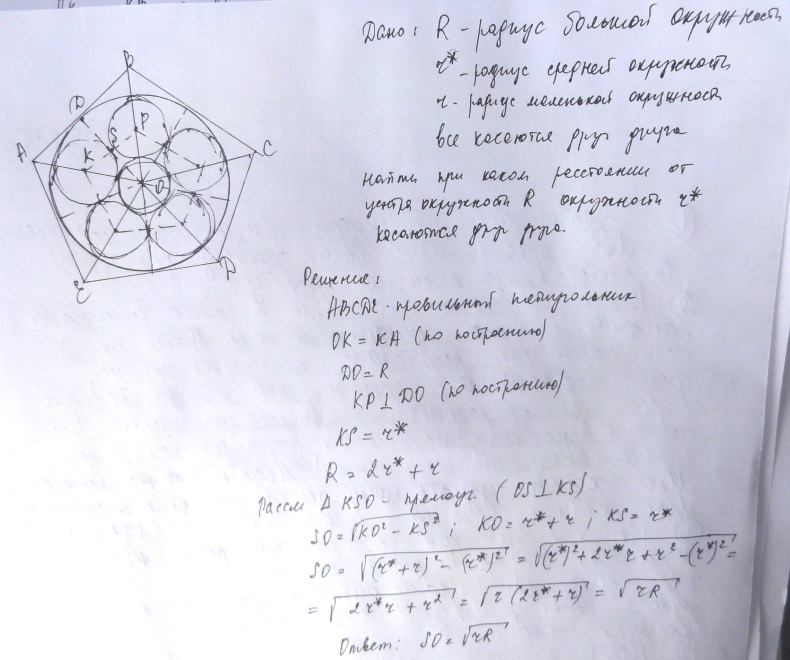 Дано: R - радиус большой окружности
r* - радиус средней окружности
r - радиус маленькой окружности
все касаются друг друга
найти при каком расстоянии от
центра окружности R окружности r*
касаются друг друга.
B
D
S
P
A
K
O
C
E
D
Решение:
ABCDE - правильный пятиугольник
OK = KA (по построению)
DO = R
KP ⊥ DO (по построению)
KS = r*
R = 2r* + r
Рассм Δ KSO - прямоуг. (OS ⊥ KS)
SO = √(KO² - KS²) ; KO = r* + r ; KS = r*
SO = √((r* + r)² - (r*)²) = √((r*)² + 2r*r + r² - (r*)²) =
= √(2r*r + r²) = √(r(2r* + r)) = √(rR)
Ответ: SO = √(rR)